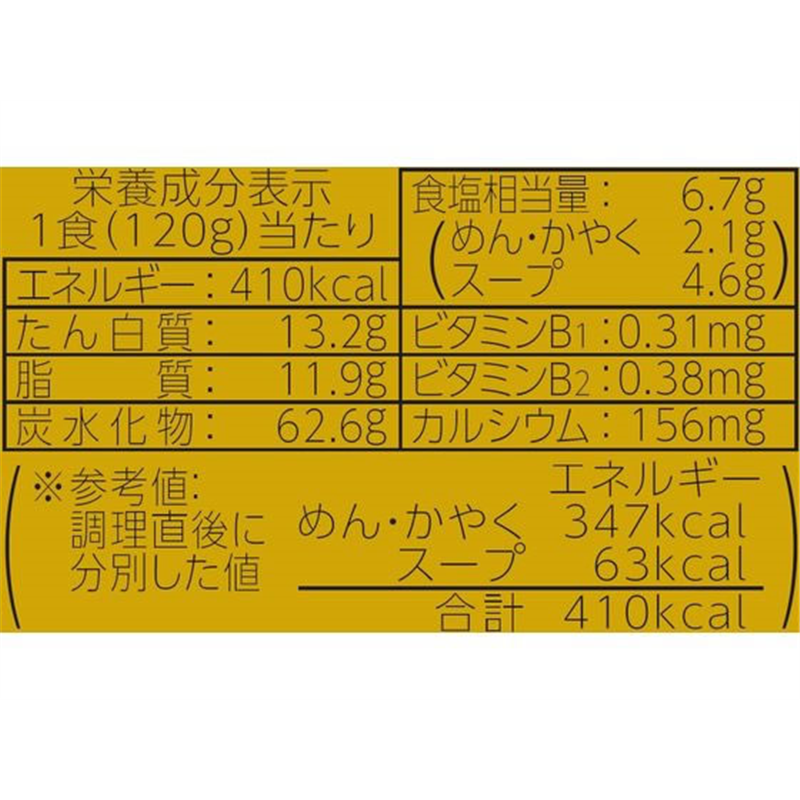 栄養成分表示
1食(120g)当たり
エネルギー:410kcal
たん白質: 13.2g
脂質: 11.9g
炭水化物: 62.6g
食塩相当量: 6.7g
(めん・かやく 2.1g
スープ 4.6g)
ビタミンB1:0.31mg
ビタミンB2:0.38mg
カルシウム:156mg
(※参考値:
調理直後に
分別した値
エネルギー
めん・かやく 347kcal
スープ 63kcal
合計 410kcal)